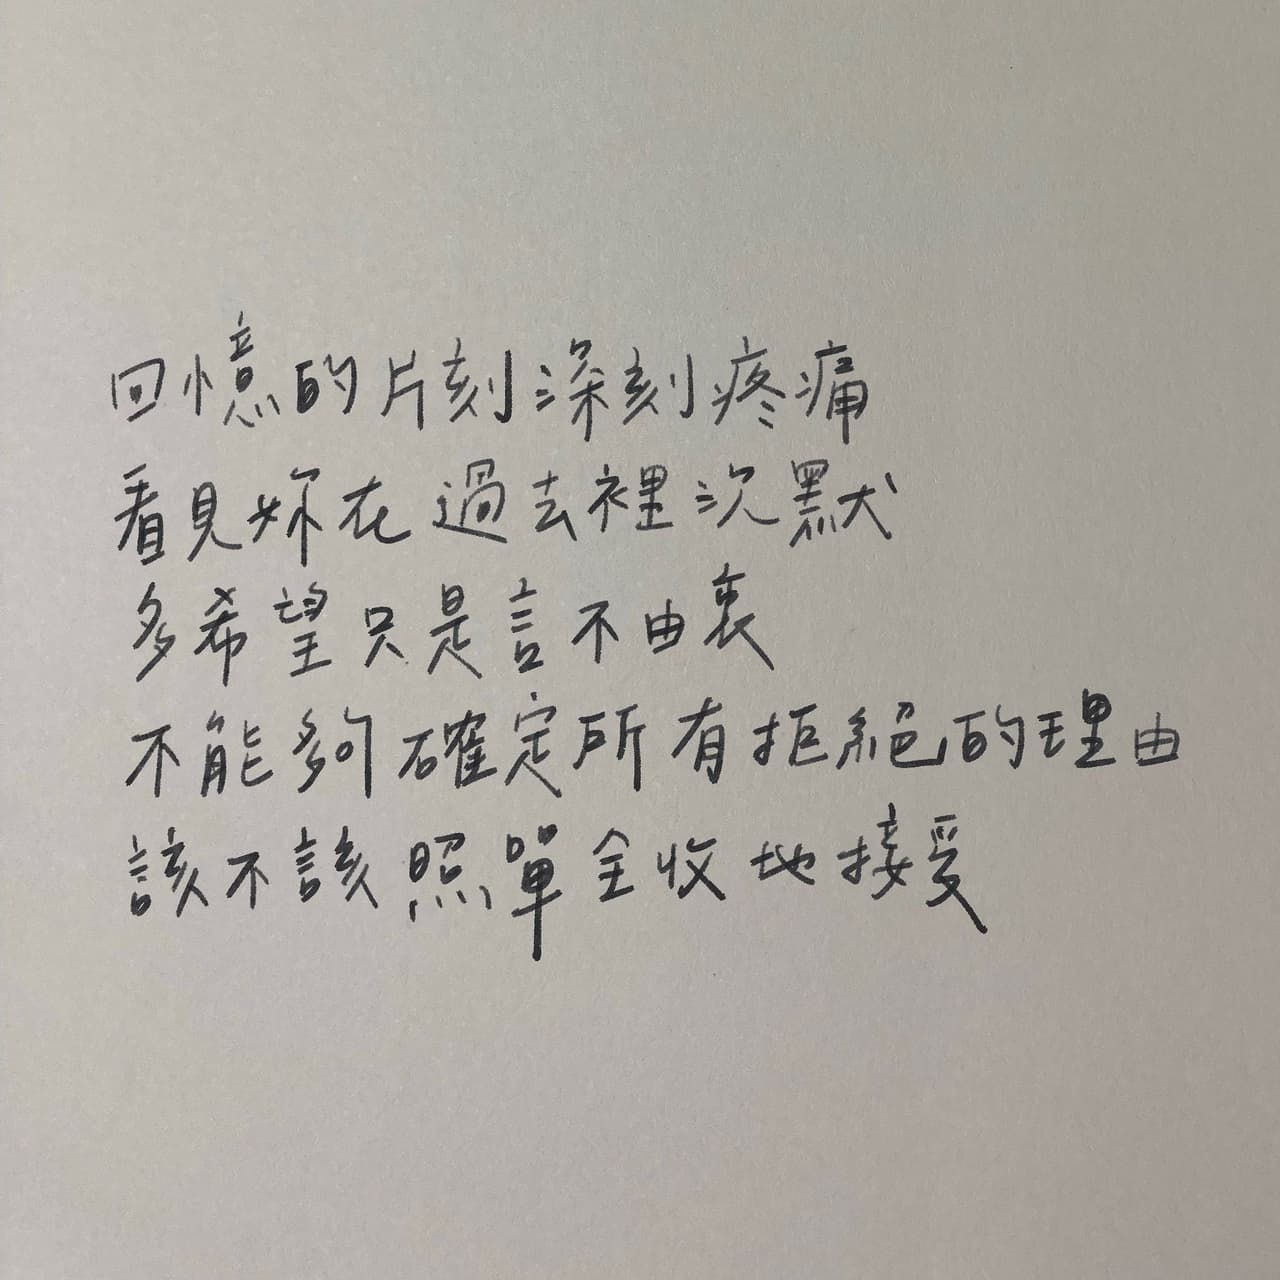 回憶的片刻深刻疼痛
看見妳在過去裡沉默
多希望只是言不由衷
不能夠確定所有拒絕的理由
該不該照單全收地接受